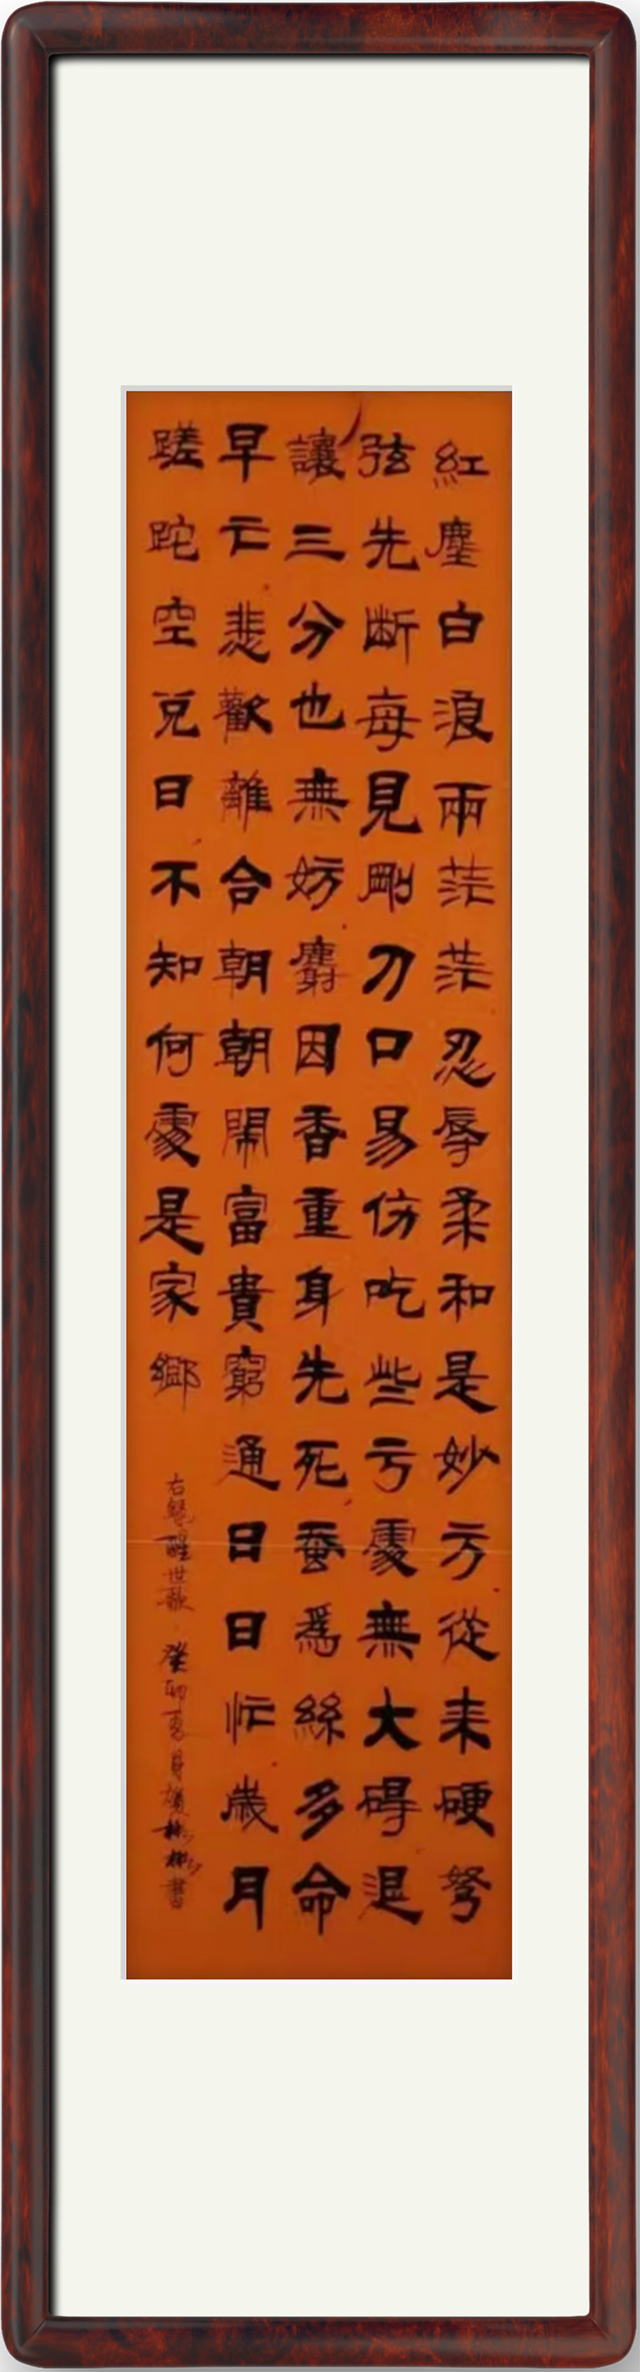 紅塵白浪兩茫茫忍辱柔和是妙方從来硬弩
弦先断每見剛刀口易伤吃些亏處無大碍退
讓三分也無妨麝因香重身先死蚕爲絲多命
早亡悲歡離合朝朝鬧富貴窮通日日忙歲月
蹉跎空兑日不知何處是家鄉
右錄醒世歌
癸卯夏月 書